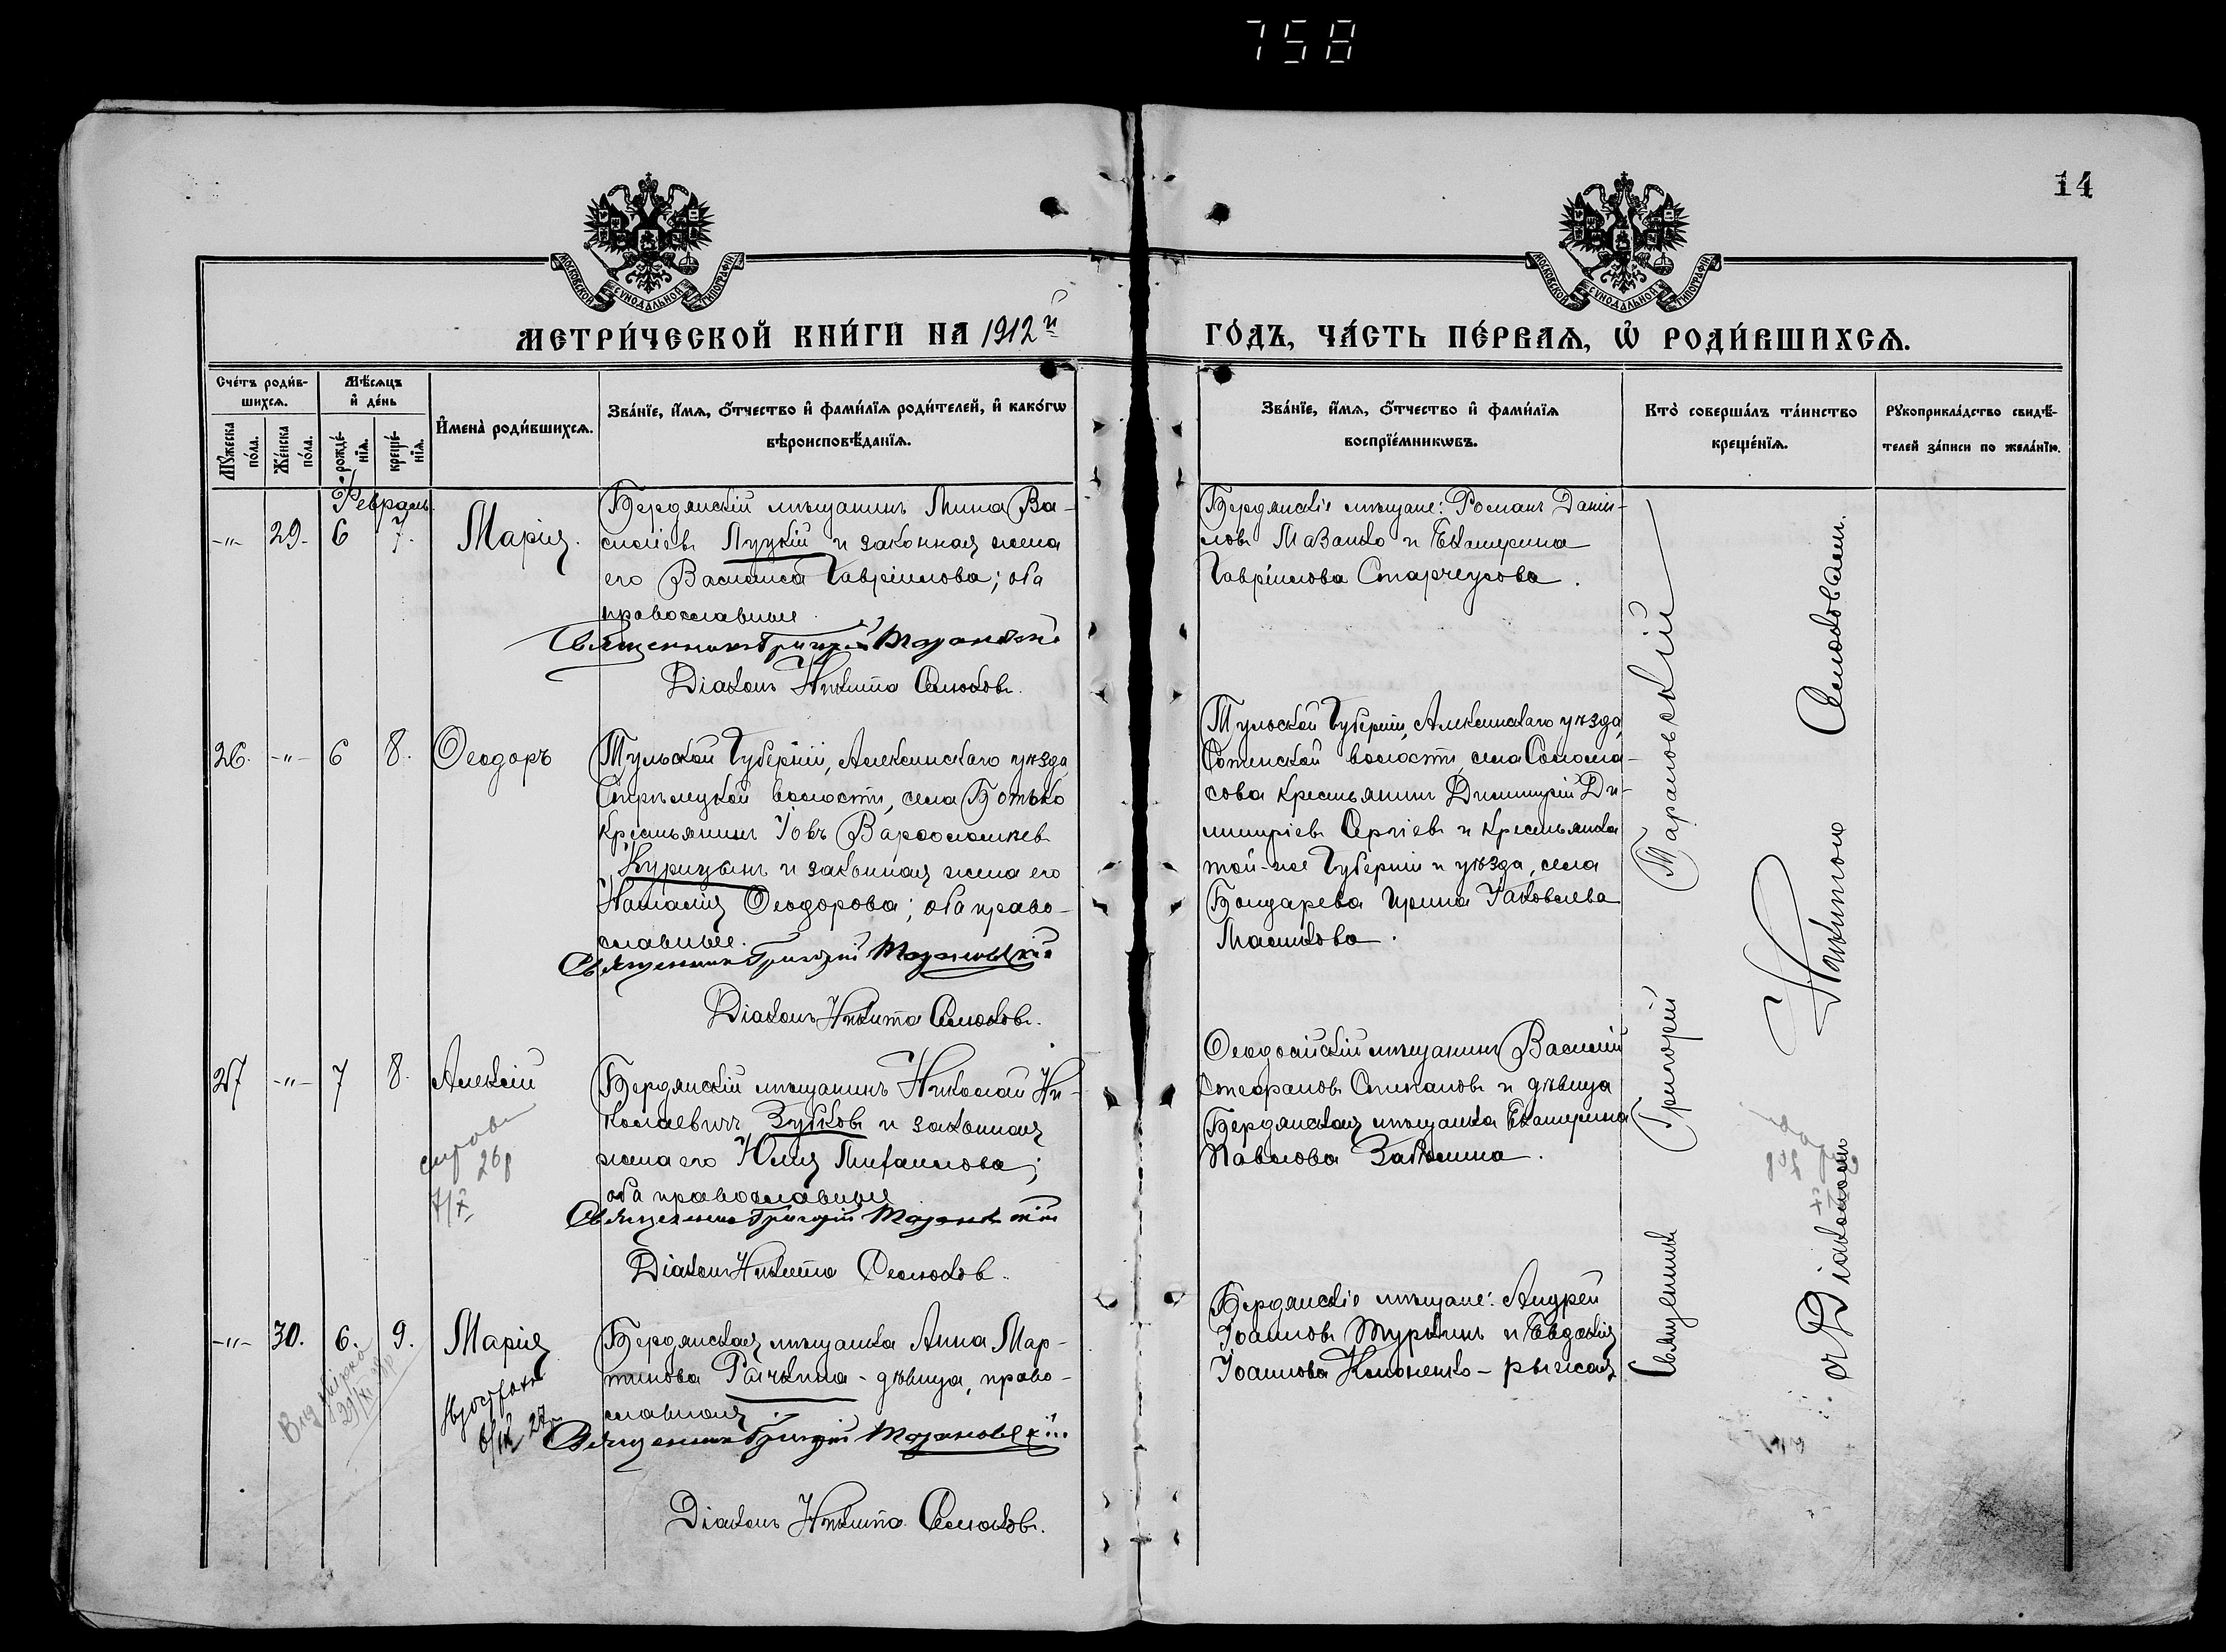 758
14
МОСКОВСКОЙ СѴНОДАЛЬНОЙ ТИПОГРАФІИ
МОСКОВСКОЙ СѴНОДАЛЬНОЙ ТИПОГРАФІИ
МЕТРИ́ЧЕСКОЙ КНИ́ГИ НА 1912й
ГО́ДЪ, ЧА́СТЬ ПЕ́РВАѦ, Ѿ РОДИ́ВШИХСѦ.
Сче́тъ роди́в-
шихсѧ.
Мѣ́сѧцъ
и҆ де́нь
Мꙋ́жеска по́ла.
Же́нска по́ла.
рожде́-нїѧ.
креще́-нїѧ.
И҆мена̀ роди́вшихсѧ.
Зва́нїе, и҆́мѧ, ѻ҆́тчество и҆ фами́лїѧ роди́телей, и҆ како́гѡ
вѣроисповѣ́данїѧ.
Зва́нїе, и҆́мѧ, ѻ҆́тчество и҆ фами́лїѧ
воспрїе́мникѡвъ.
Кто̀ соверша́лъ та́инство
креще́нїѧ.
Рꙋкоприкла́дство свидѣ́-
телей за́писи по жела́нїю.
Февраль.
-"- 29. 6 7. Марія.
Бердянскій мѣщанинъ Мина Ва-
силіевъ Луцкій и законная жена
его Василиса Гавріилова; оба
православные.
Священникъ Григорій Тарановскій
Діаконъ Никита Сѣлюковъ.
Бердянскіе мѣщане: Романъ Даніи-
ловъ Мазанко и Екатерина
Гавріилова Старчеусова.
26. -"- 6 8. Ѳеодоръ
Тульской Губерніи, Алексинскаго уѣзда,
Стрѣлецкой волости, села Ботько
крестьянинъ Іовъ Варѳоломѣевъ
Курицынъ и законная жена его
Наталія Ѳеодорова; оба право-
славные.
Священникъ Григорій Тарановскій
Діаконъ Никита Сѣлюковъ.
Тульской Губерніи, Алексинскаго уѣзда,
Сотинской волости, села Солома-
сова крестьянинъ Димитрій Ди-
митріевъ Сергіевъ и крестьянка
той-же Губерніи и уѣзда, села
Бондарева Ирина Іаковлева
Маслова.
27 -"- 7 8. Алексій
26р
7/X
Бердянскій мѣщанинъ Николай Ни-
колаевичъ Зубковъ и законная
жена его Юлія Михаилова;
оба православные
Священникъ Григорій Тарановскій
Діаконъ Никита Сѣлюковъ.
Ѳеодосійскій мѣщанинъ Василій
Стефановъ Степановъ и дѣвица
Бердянская мѣщанка Екатерина
Павлова Заболина.
-"- 30. 6. 9. Марія
Бердянская мѣщанка Анна Мар-
тинова Рачкина - дѣвица, право-
славная.
Священникъ Григорій Тарановскій
Діаконъ Никита Сѣлюковъ.
Бердянскіе мѣщане: Андрей
Іоанновъ Шуркинъ и Евдокія
Іоаннова Кононенко - рыжая
Священникъ Григорій Тарановскій
съ Діакономъ Никитою Сѣлюковымъ.